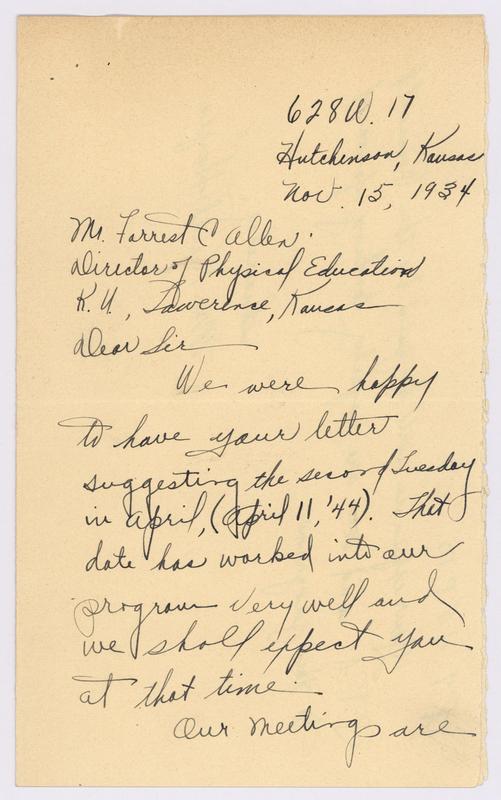 628 W. 17
Hutchinson, Kansas
Nov. 15, 1934
Mr. Forrest C Allen.
Director of Physical Education
K. U., Lawerence, Kansas
Dear Sir
We were happy
to have your letter
suggesting the second Tuesday
in April, (April 11, '44). That
date has worked into our
program very well and
we shall expect you
at that time.
Our meetings are